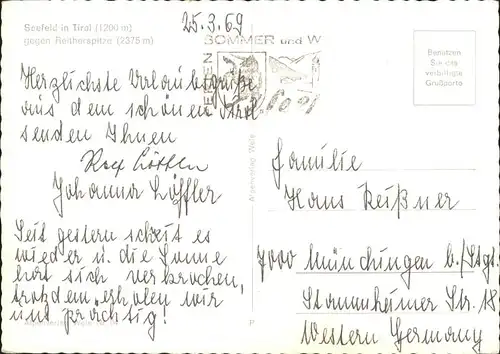 Seefeld in Tirol (1200 m)
gegen Reitherspitze (2375 m)
25.3.69
SOMMER und W
FERIEN
Benützen
Sie die
verbilligte
Grußkarte
Herzlichste Urlaubsgrüße
aus dem schönen Tirol
senden Ihnen
Rolf Löffler
Johanna Löffler
Seit gestern schneit es
wieder u. die Sonne
hat sich verkrochen,
trotzdem erholen wir
uns prächtig!
Familie
Hans Reißner
7000 Münchingen b./Stgt.
Stammheimer Str. 18
Western Germany